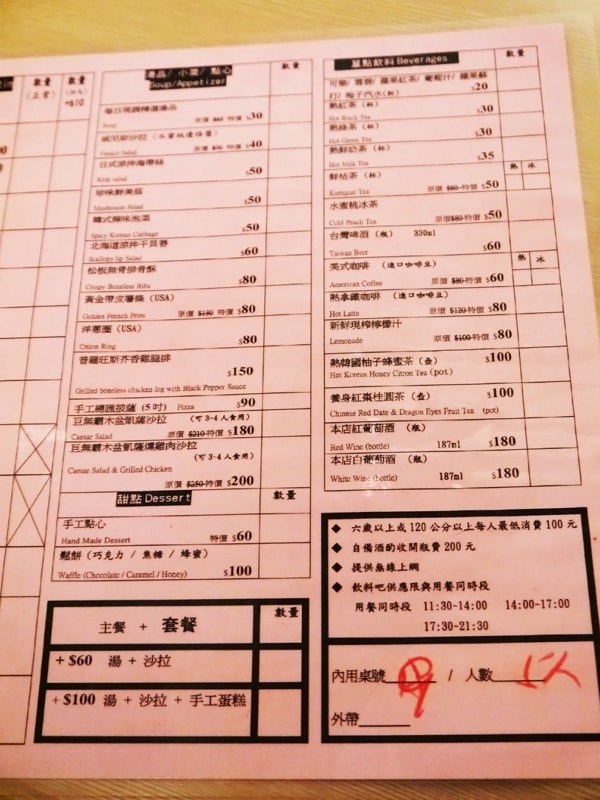 數量
(正常)
數量
+$10
湯品/ 小菜/ 點心
Soup/Appetizer
數量
每日現調精選湯品
Soup 原價 $65 特價 $30
威尼斯沙拉 (水蜜桃優格醬)
Venice Salad 原價 $70 特價 $40
日式涼拌海帶絲
Kelp salad $50
珍味鮮美菇
Mushroom Salad $50
韓式辣味泡菜
Spicy Korean Cabbage $50
北海道涼拌干貝唇
Scallops lip Salad $60
松板無骨排骨酥
Crispy Boneless Ribs $80
黃金帶皮薯條 (USA)
Golden French Fries 原價 $130 特價 $80
洋蔥圈 (USA)
Onion Ring $80
普羅旺斯芥香雞腿排
$150
Grilled boneless chicken leg with Black Pepper Sauce
手工總匯披薩 (5 吋) Pizza $90
巨無霸木盆凱薩沙拉 (可 3-4 人食用)
Caesar Salad 原價 $210 特價 $180
巨無霸木盆凱薩燻雞肉沙拉
(可 3-4 人食用)
Caesar Salad & Grilled Chicken
原價 $250 特價 $200
甜點 Dessert 數量
手工點心
Hand Made Dessert 特價 $60
鬆餅 (巧克力 / 焦糖 / 蜂蜜)
Waffle (Chocolate / Caramel / Honey) $100
主餐 + 套餐 數量
+ $60 湯 + 沙拉
+ $100 湯 + 沙拉 + 手工蛋糕
單點飲料 Beverages 數量
可樂/ 雪碧/ 蘋果紅茶/ 葡萄汁/ 蘋果蘇
打/ 梅子汽水(杯) $20
熱紅茶 (杯)
Hot Black Tea $30
熱綠茶 (杯)
Hot Green Tea $30
熱鮮奶茶 (杯)
Hot Milk Tea $35
鮮桔茶 (杯) 熱 冰
Kumquat Tea 原價 $80 特價 $50
水蜜桃冰茶
Cold Peach Tea 原價 $80 特價 $50
台灣啤酒 (瓶) 330ml
Taiwan Beer $60
美式咖啡 (進口咖啡豆) 熱 冰
American Coffee 原價 $80 特價 $60
熱拿鐵咖啡 (進口咖啡豆)
Hot Latte 原價 $120 特價 $80
新鮮現榨檸檬汁
Lemonade 原價 $100 特價 $80
熱韓國柚子蜂蜜茶 (壺) $100
Hot Korean Honey Citron Tea (pot)
養身紅棗桂圓茶 (壺) $100
Chinese Red Date & Dragon Eyes Fruit Tea (pot)
本店紅葡萄酒 (瓶)
Red Wine (bottle) 187ml $180
本店白葡萄酒 (瓶)
White Wine (bottle) 187ml $180
◆ 六歲以上或 120 公分以上每人最低消費 100 元
◆ 自備酒酌收開瓶費 200 元
◆ 提供無線上網
◆ 飲料吧供應限與用餐同時段
用餐同時段 11:30~14:00 14:00~17:00
17:30~21:30
內用桌號 / 人數 5人
外帶